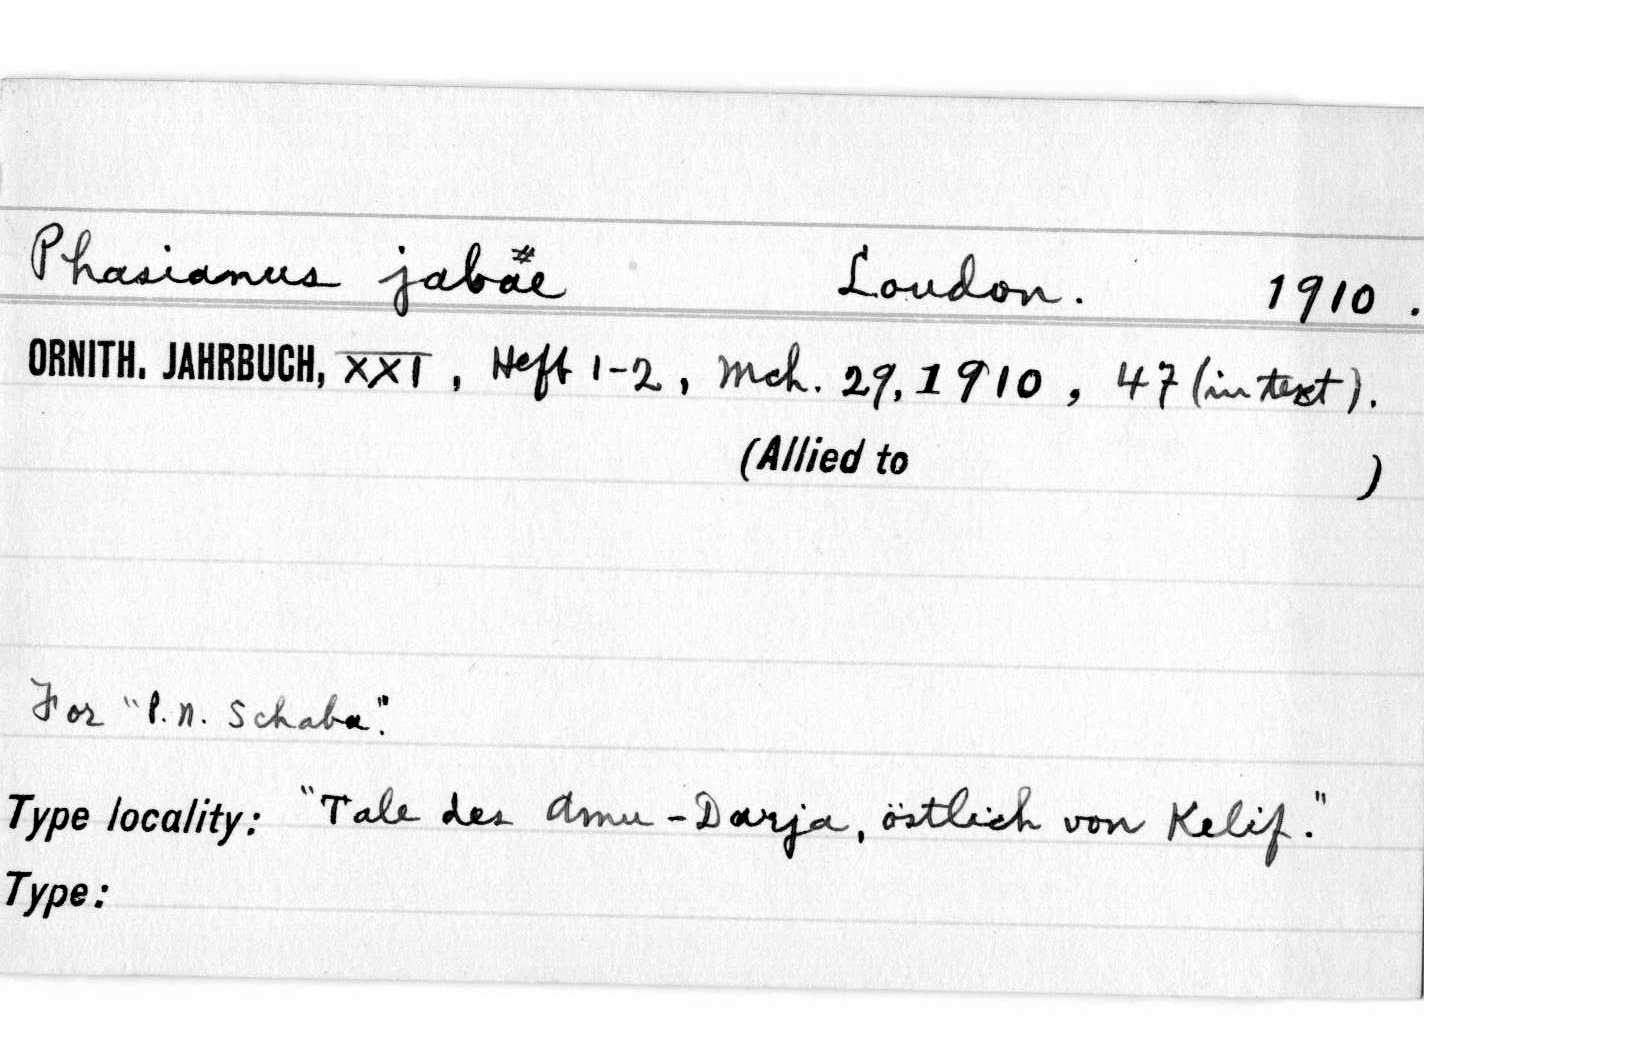 Phasianus jabae# Loudon. 1910.
ORNITH. JAHRBUCH, XXI, Heft 1-2, Mch. 29, 1910, 47 (in text).
(Allied to )
For "P. n. Schaba".
Type locality: "Tale des Amu-Darja, östlich von Kelif."
Type: